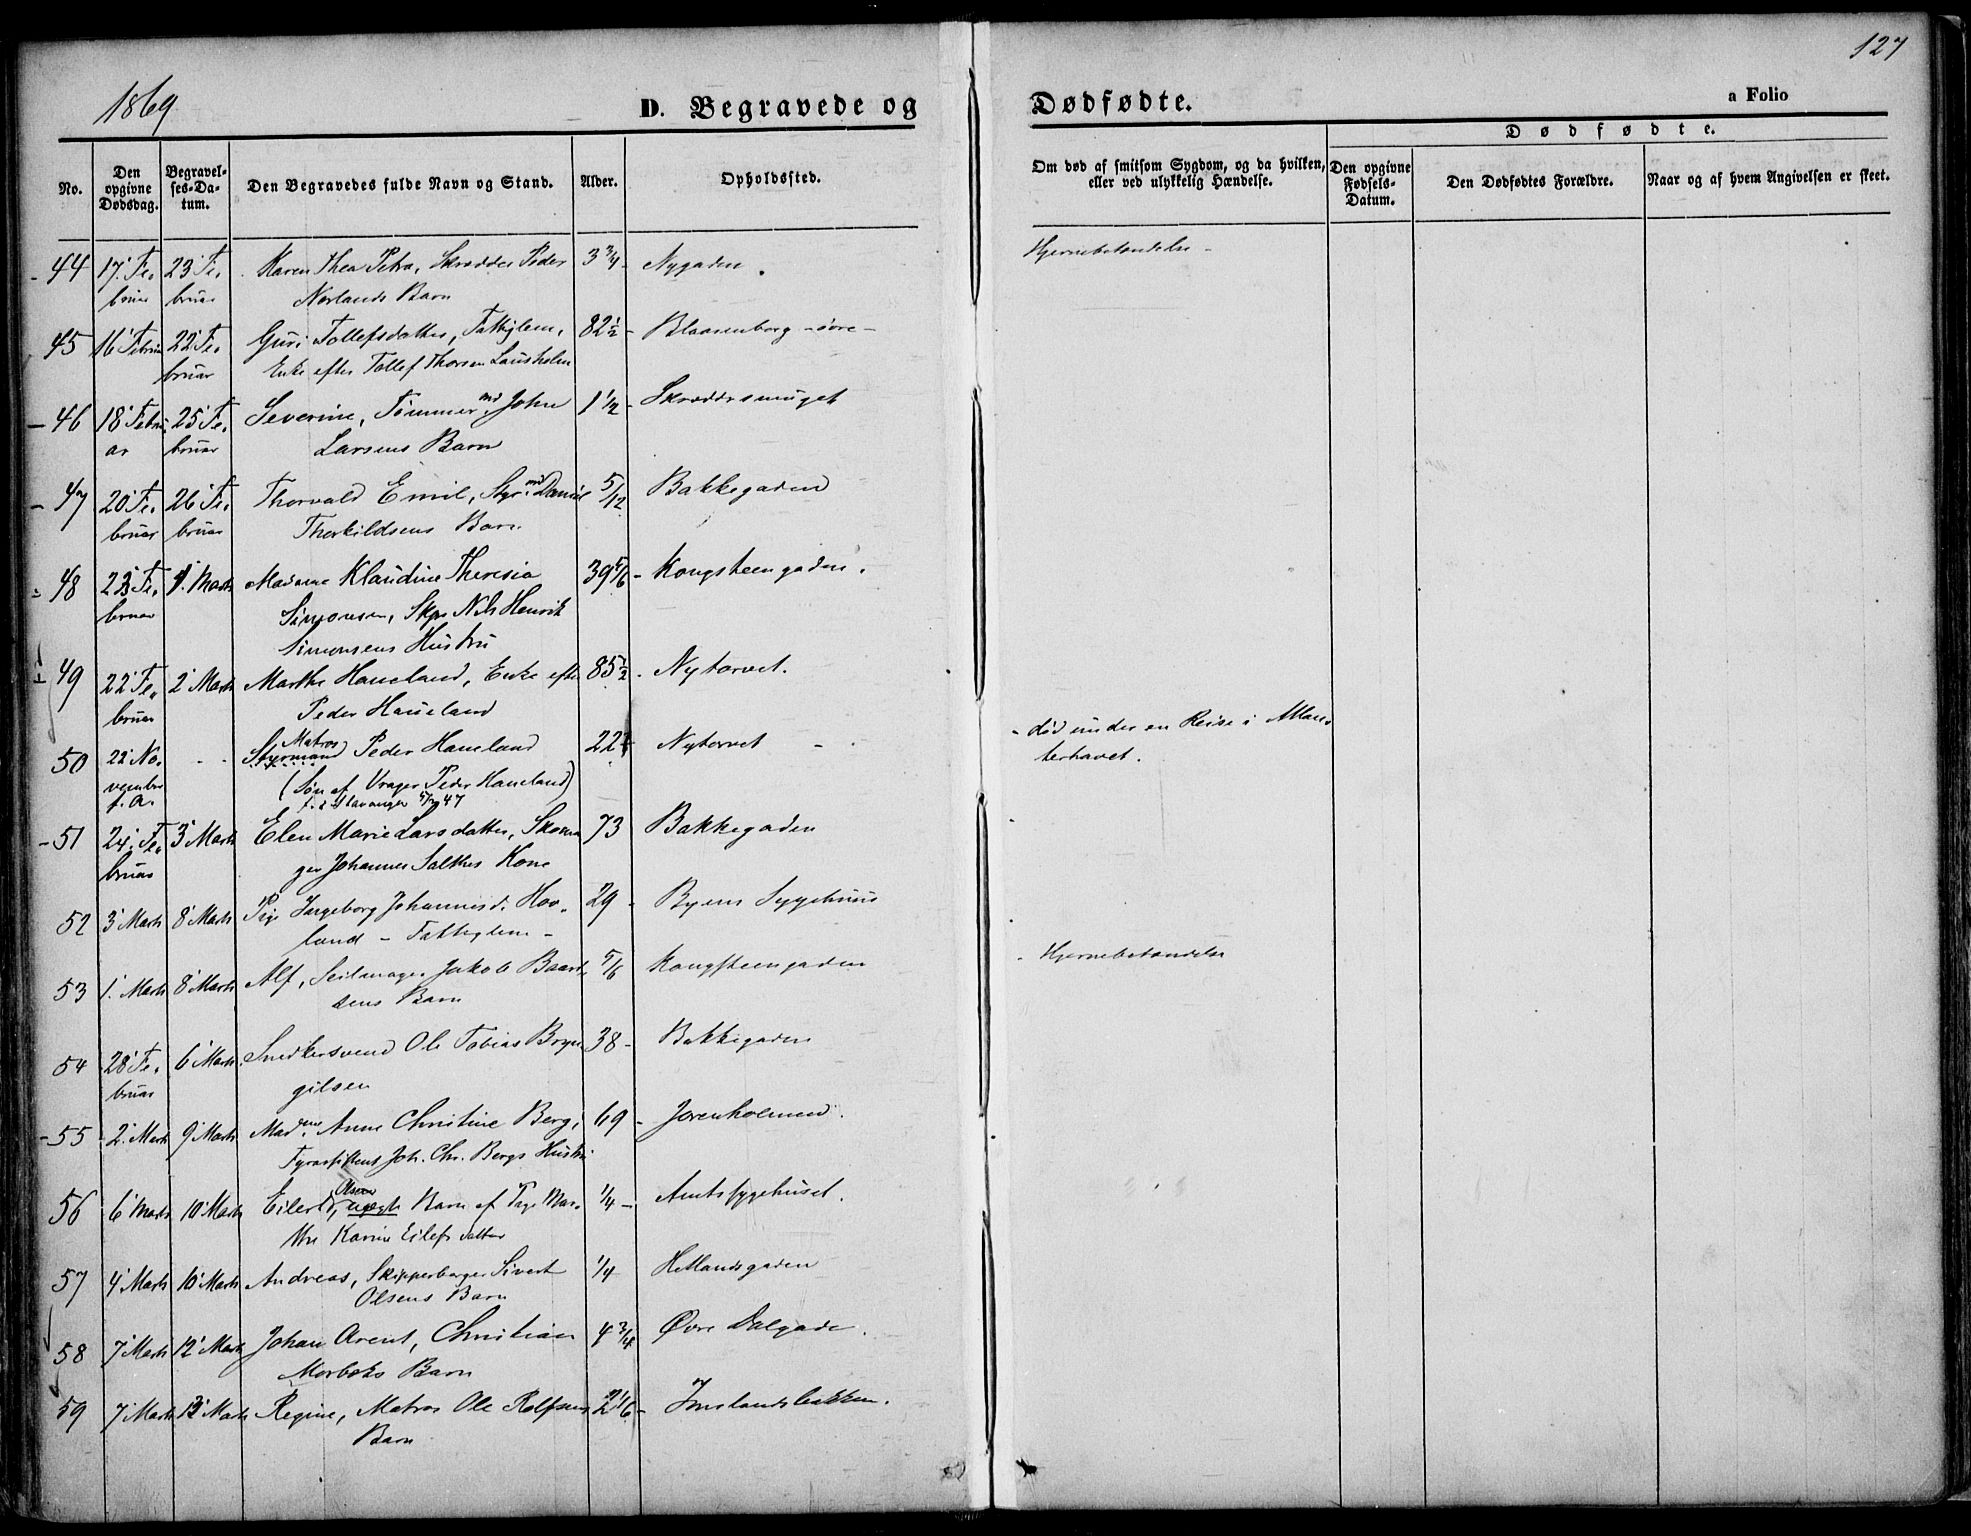 127
1869
D. Begravede og Dødfødte.
a Folio
No.
Den opgivne Dødsdag.
Begravelses-Datum.
Den Begravedes fulde Navn og Stand.
Alder.
Opholdssted.
Om død af smitsom Sygdom, og da hvilken, eller ved ulykkelig Hændelse.
Dødfødte.
Den opgivne Fødsels-Datum.
Den Dødfødtes Forældre.
Naar og af hvem Angivelsen er skeet.
44 17. Fe, 23 Fe, Karen Thea Petra, Skrædder Peder 3 3/4 - Nygaden. Hjernebetændelse -
bruar bruar Nørlands Barn
45 16 Februar 22 Fe, Guri Tollefsdatter, Fattiglem, 82 1/2 - Blaasenborg - øvre -
bruar Enke efter Tollef Thorsen Lausholm
46 18 Febru, 25 Fe, Severine, Tømmermd. John 1 1/2 - Skræddersmuget
ar bruar Larsens Barn
47 20 Fe, 26 Fe, Thorvald Emil, Styrmd. Daniel 5/12 Bakkegaden
bruar bruar Thorkildsens Barn
48 23 Fe, 1. Marts Madame Klaudine Theresia 39 5/6 - Kongsteengaden.
bruar Simonsen, Skpr Nils Henrik
Simonsens Hustru
49 22 Fe, 2 Marts Marthe Haueland, Enke efter 85 1/2 - Nytorvet.
bruar Peder Haueland
50 22 No, - - Styrmand Matros Peder Haueland 22 Nytorvet - - død under en Reise i Atlan,
vember (Søn af Vrager Peder Haueland) terhavet.
f. A. f. i Stavanger 47
51 24. Fe, 3 Marts Elen Marie Larsdatter, Skoma 73 Bakkegaden
bruar ger Johannes Salthes Kone
52 3 Marts 8 Marts Pige Ingeborg Johannesd. Hov, 29 - Byens Sygehuus
land - Fattiglem -
53 1. Marts 8 Marts Alf, Seilmager Jakob Baard, 5/6 Kongsteengaden - Hjernebetændelse
sens Barn
54 28 Fe, 6 Marts Snedkersvend Ole Tobias Bryn 38 - Bakkegaden
bruar gilsen
55 2. Marts 9 Marts Madme. Anne Christine Berg, 69 - Jorenholmen.
Joh. Chr. Bergs Hustru
56 6 Marts 10 Marts Eilert Olsen, uægte Barn af Pige Mar, 1/4 - Amtssygehuset.
the Karine Eilefsdatter
57 4 Marts 10 Marts Andreas, Skipperborger Sivert 1/4 Hetlandsgaden
Olsens Barn
58 7 Marts 12 Marts Johan Arent, Christian 4 3/4 Øvre Dalgade.
Morbeks Barn
59 7 Marts 13 Marts Regine, Matros Ole Rolfsens 2 1/6 - Jonslandsbakken.
Barn